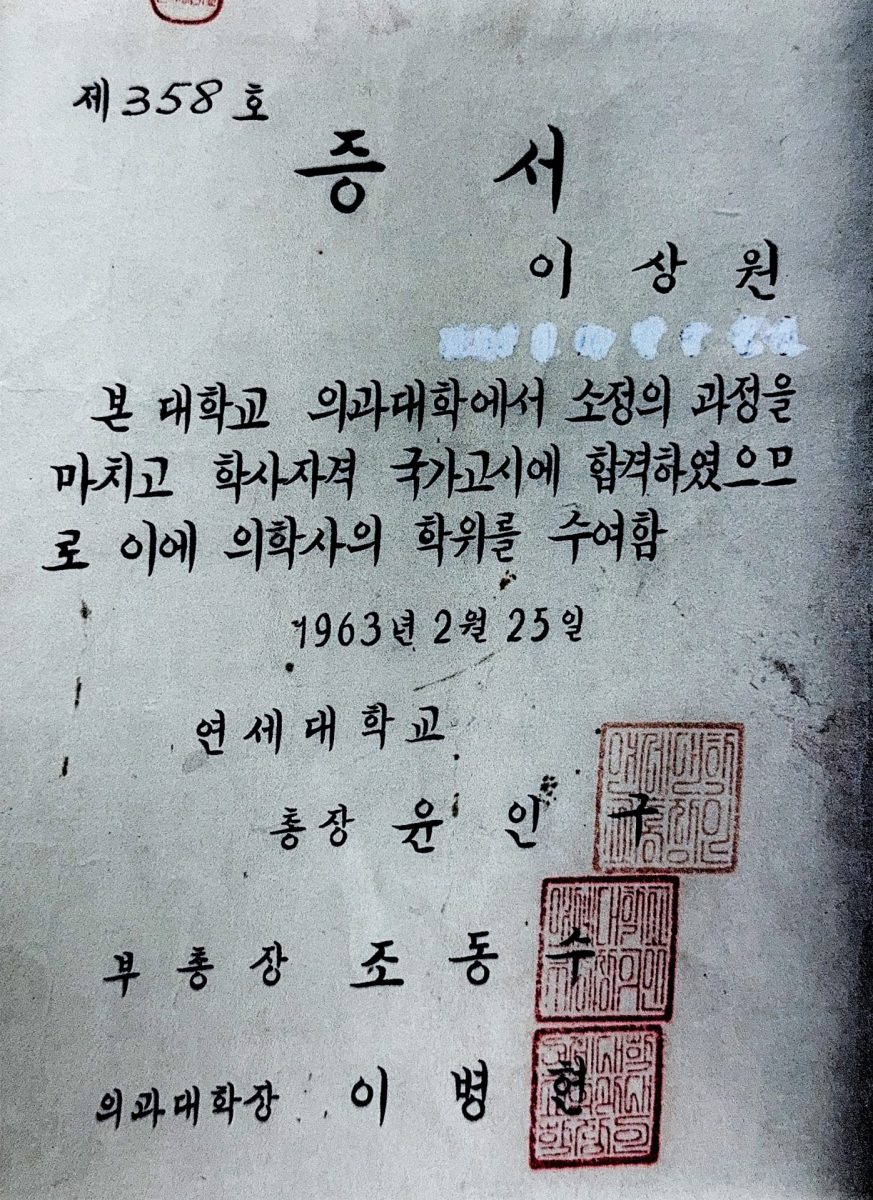 제 358 호
증 서
이 상 원
본 대학교 의과대학에서 소정의 과정을
마치고 학사자격 국가고시에 합격하였으므
로 이에 의학사의 학위를 수여함
1963년 2월 25일
연세대학교
총장 윤 인 구
부총장 조 동 수
의과대학장 이 병 현